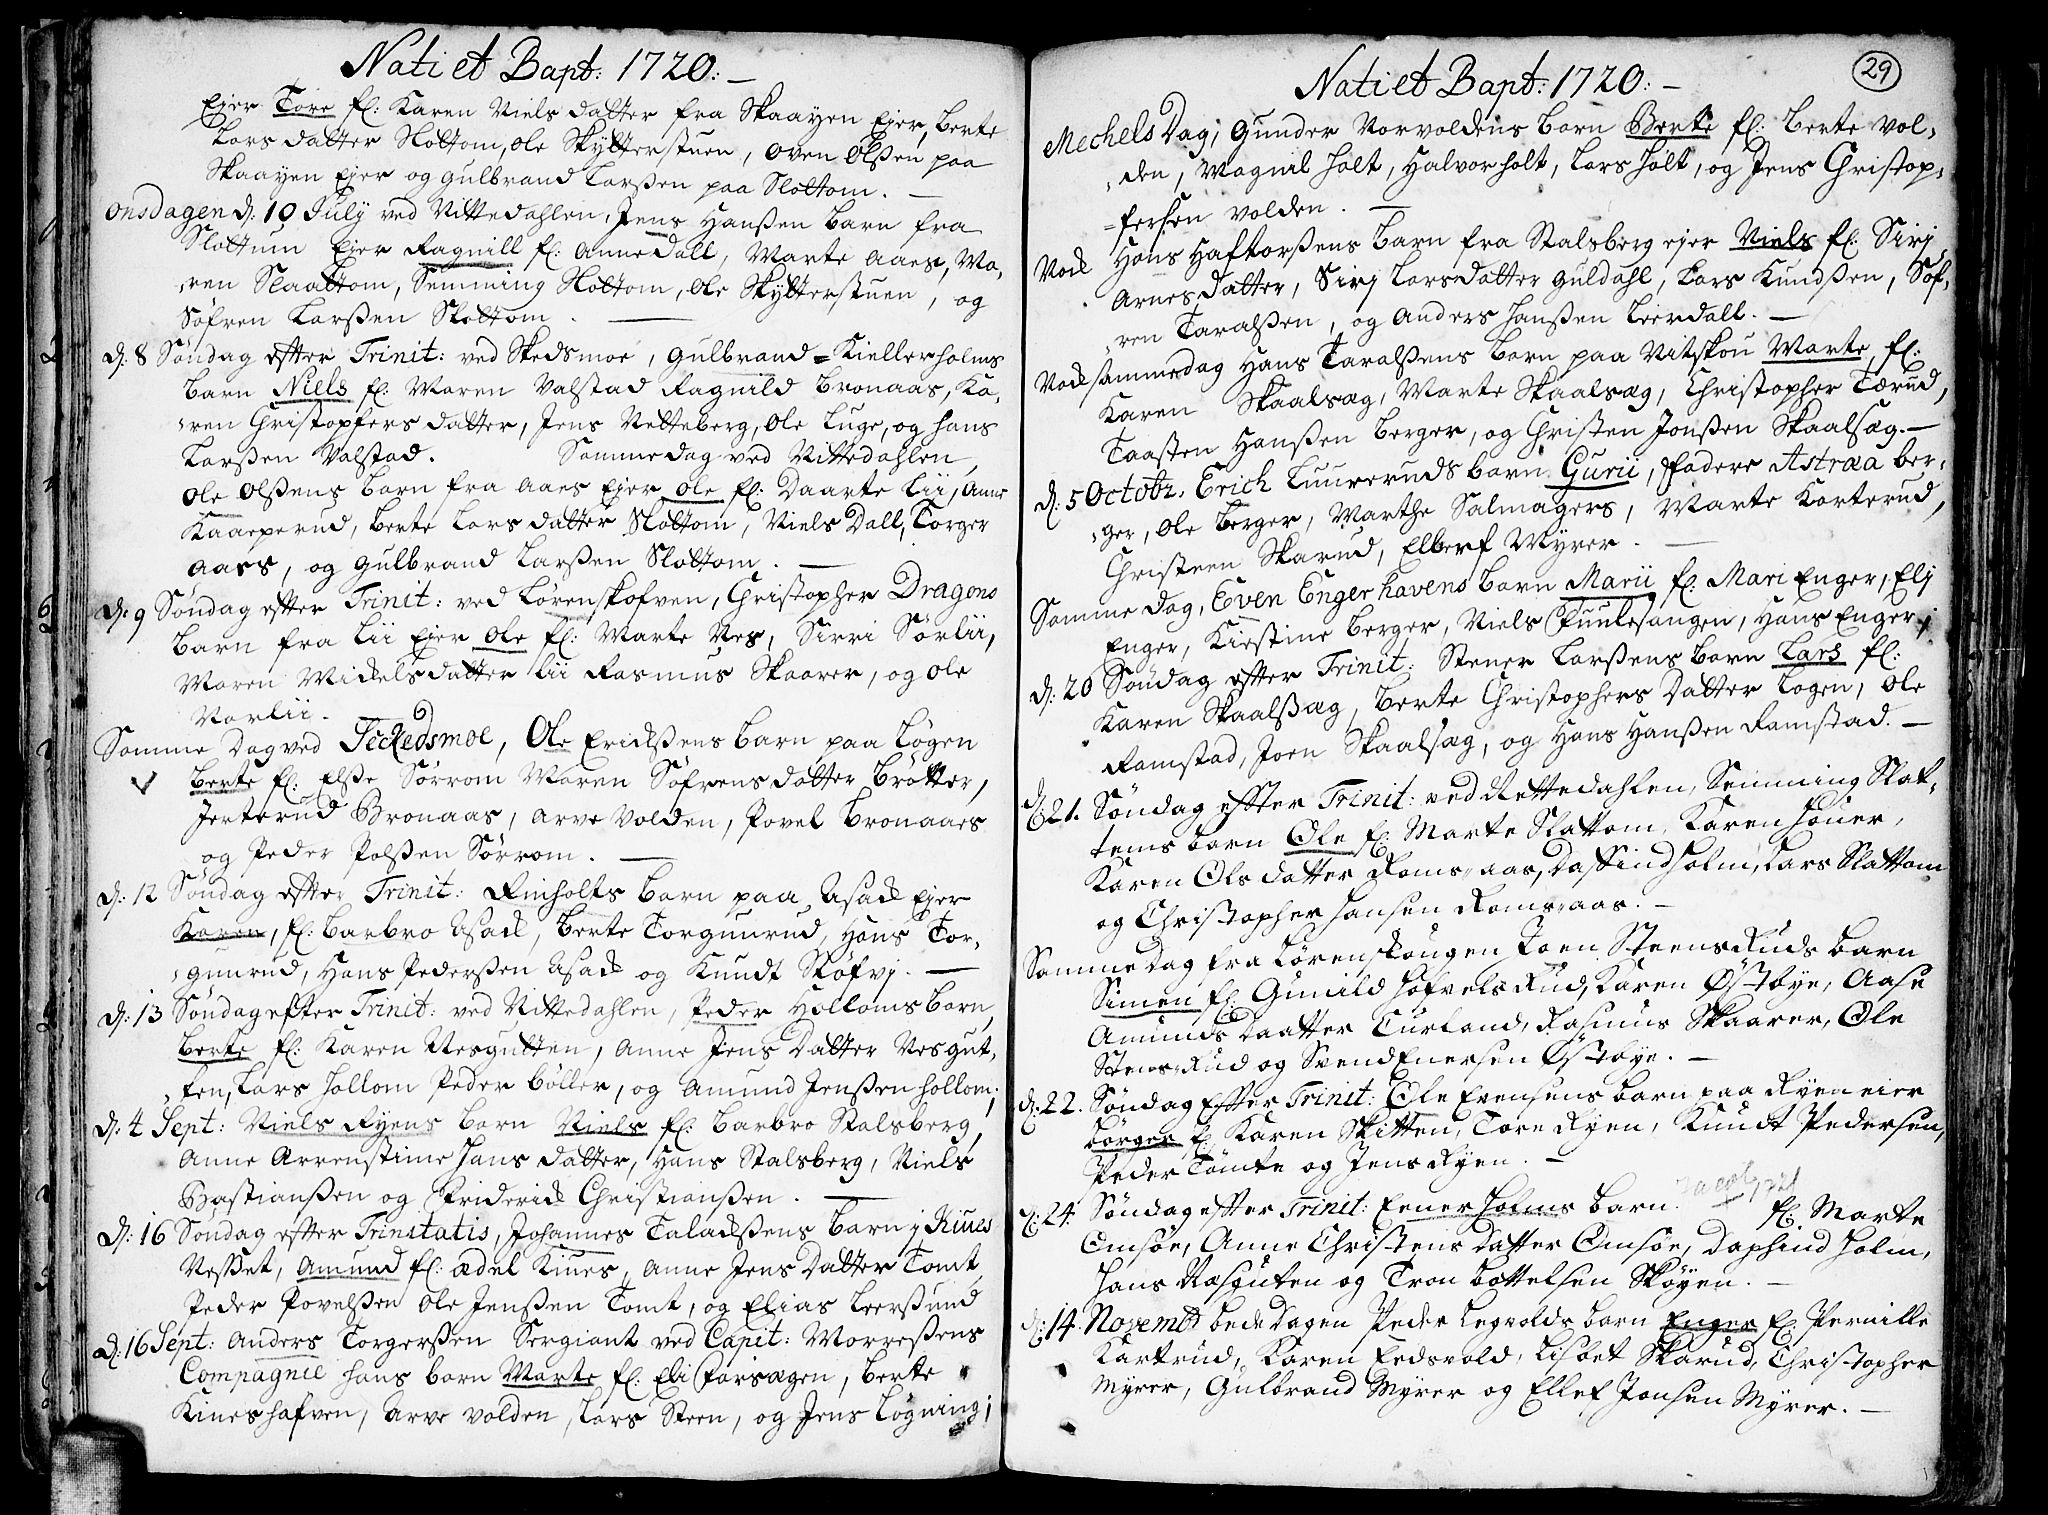 Nati et Bapt: 1720:—
Ejer Tore fl: Karen Niels datter fra Skaayen Ejer, Berte
Lars datter Slottom, Ole Skytterstuen, Oven Olßen paa
Skaayen Ejer og Gulbrand Larßen paa Slottom.—
Onsdagen d: 10 July ved Nittedahlen, Jens Hanßen barn fra
Slottum Ejer Ragnill fl: Anne Dall, Marte Aaes, Ma,
,ren Slaattom, Semming Slottom, Ole Skytterstuen, og
Söfren Larßen Slottom.—
d: 8 Söndag efter Trinit: ved Skedsmoe, Gulbrand Kiellerholms
barn Niels fl: Maren Valstad Ragnild Bronaas, Ka,
,ren Christopfers datter, Jens Netteberg, Ole Luge, og Hans
Larßen Valstad. Samme dag ved Nittedahlen
Ole Olßens barn fra Aaes Ejer Ole fl: Daarte Lii, Anne
Kaaeperud, Berte Lars datter Slottom, Niels Dall, Torger
Aaes, og Gulbrand Larßen Slottom.—
d: 9 Söndag efter Trinit: ved Lörenskofven, Christopher Dragons
barn fra Lii Ejer Ole fl: Marte Nes, Sirri Sörlii,
Maren Mickelsdatter Lii Rasmus Skaarer, og Ole
Norlii.
Samme Dag ved Skedsmoe, Ole Erickßens barn paa Lögen
Berte fl: Elße Sörrom Maren Söfrens datter Brötter,
Jerterud Bronaas, Arve Volden, Povel Bronaaes
og Peder Polßen Sörrom.—
d: 12 Söndag efter Trinit: Rinholts barn paa Asack Ejer
Karen, fl: Barbro Asack, Berte Torgunrud, Hans Tor,
,gunrud, Hans Pederßen Asack og Knudt Sköfvj.—
d: 13 Söndag efter Trinit: ved Nittedahlen, Peder Holloms barn
Berte fl: Karen Nesgutten, Anne Jens Datter Nesgut,
,ten, Lars Hollom Peder Böller, og Amund Jenßen Hollom;
d: 4 Sept: Niels Ryens barn Niels fl: Barbro Stalsberg,
Anne Arrenstime Hans datter, Hans Stalsberg, Niels
Bastianßen og Friderick Christianßen.—
d: 16 Söndag efter Trinitatis, Johannes Taladßens barn j Riues
Neßet, Amund fl: Ædel Kiues, Anne Jens Datter Tomt,
Peder Povelßen Ole Jenßen Tomt, og Elias Leerßund
d: 16 Sept: Anders Torgerßen Sergiant ved Capit: Morreßens
Compagnie hans barn Marte fl: Eli Farsægen, Berte
Kineshafven, Arve Volden, Lars Steen, og Jens Lögning;
Nati et Bapt: 1720:—
29
Mechels Dag, Gunder Norvoldens barn Berte fl: Berte Vol,
,den, Magnil Holt, Halvor Holt, Lars Holt, og Jens Christop,
=ferßen Volden.—
Nock Hans Haftorßens barn fra Stalsberg ejer Niels fl: Sirj
Arnes datter, Sirj Larsdatter Guldahl, Lars Knudßen, Söf,
,ren Taralßen, og Anders Hanßen Leerdall.—
Nock sammedag Hans Taralßens barn paa Nitskou Marte fl:
Karen Skaalsæg, Marte Skaalsæg, Christopher Tærud,
Taasten Hanßen Berger, og Christen Jonßen Skaalsæg.—
d: 5 Octobr. Erich Luureruds barn Gurii, Fadere Astræa Ber,
,ger, Ole Berger, Marthe Salmagers, Marte Korterud,
Christeen Skarud, Elbert Myrer.—
Samme dag, Even Engerhavens barn Marii fl: Mari Enger, Elj
Enger, Kiestine Berger, Niels Fuulesangen, Hans Enger;
d: 20 Söndag efter Trinit: Stener Larßens barn Lars fl:
Karen Skaalßæg, Berte Christophers Datter Logen, Ole
Ramstad, Joen Skaalsæg, og Hans Hanßen Ramstad.—
d: 21. Söndag efter Trinit: ved Nettedahlen, Semming Slat,
tems barn Ole fl: Marte Slattom, Karen Höuer,
Karen Ols datter Roms-aas, Daffind Holm, Lars Slattom
og Christopher Hansen Romsaas.—
Samme Dag fra Lörenskougen Joen Steensruds barn
Simen fl: Gunild Höfvelsrud, Karen Östbye, Aase
Amunds Daatter Turland, Rasmus Skaarer, Ole
Stensrud og Svend Enersen Östbye.—
d: 22. Söndag Efter Trinit: Ole Evensens barn paa Ryen eier
Börger fl: Karen Skitten, Tore Ryen, Knudt Pedersen,
Peder Tömte og Jens Ryen.—
d: 24. Söndag efter Trinit: Eener Holms barn. fl: Marte
Omsöe, Anne Christens Datter Omsöe, Daphind Holm,
Hans Nasguten og Tron Bottelsen Sköyen.—
d: 14 Novemb bede Dagen Peder Legvolds barn Enger fl: Pernille
Kartrud, Karen Eedsvold, Lisbet Skarud, Christopher
Myrer, Gulbrand Myrer og Ellef Jonsen Myrer.—